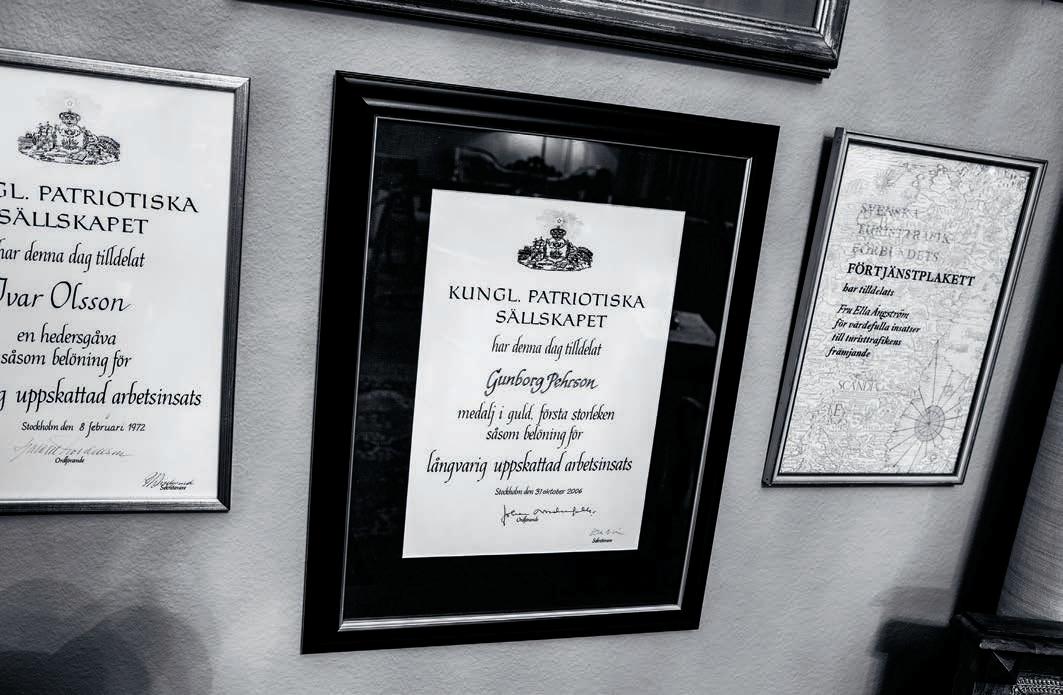 GL. PATRIOTISKA
SÄLLSKAPET
har denna dag tilldelat
Ivar Olsson
en hedersgåva
såsom belöning för
g uppskattad arbetsinsats
Stockholm den 8 februari 1972
Ordförande
Sekreterare
KUNGL. PATRIOTISKA
SÄLLSKAPET
har denna dag tilldelat
Gunborg Pehrson
medalj i guld, första storleken
såsom belöning för
långvarig uppskattad arbetsinsats
Stockholm den 31 oktober 2006
Ordförande
Sekreterare
SVENSKA
TURISTTRAFIK
FÖRBUNDETS
FÖRTJÄNSTPLAKETT
har tilldelats
Fru Ella Ångström
för värdefulla insatser
till turisttrafikens
främjande